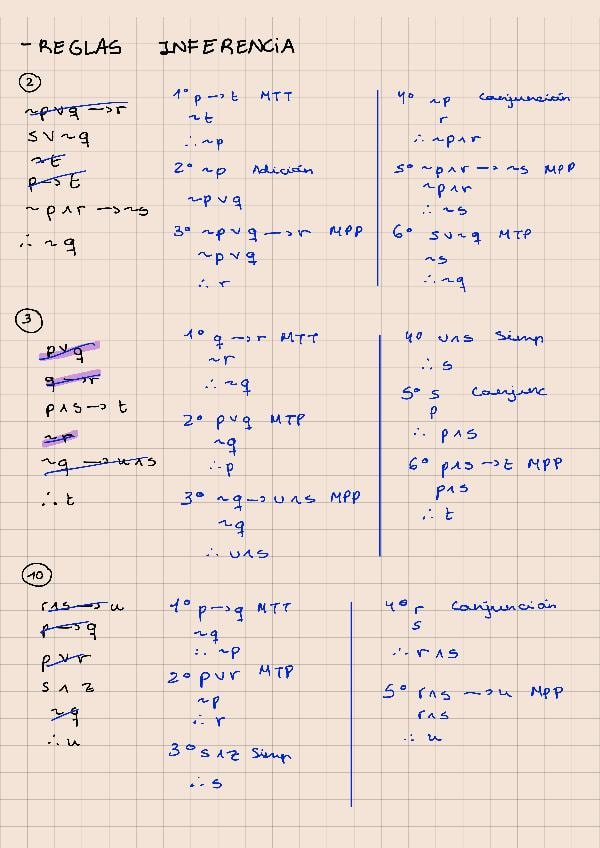 - REGLAS INFERENCIA
2
~p∨q → r
s∨~q
~t
p → t
~p∧r → ~s
∴ ~q
1º p → t MTT
~t
∴ ~p
2º ~p Adición
~p∨q
3º ~p∨q → r MPP
~p∨q
∴ r
4º ~p Conjunción
r
∴ ~p∧r
5º ~p∧r → ~s MPP
~p∧r
∴ ~s
6º s∨~q MTP
~s
∴ ~q
3
p∨q
q → r
p∧s → t
~r
~q → u∧s
∴ t
1º q → r MTT
~r
∴ ~q
2º p∨q MTP
~q
∴ p
3º ~q → u∧s MPP
~q
∴ u∧s
4º u∧s Simp
∴ s
5º s Conjunc
p
∴ p∧s
6º p∧s → t MPP
p∧s
∴ t
10
r∧s → u
p → q
p∨r
s∧z
~q
∴ u
1º p → q MTT
~q
∴ ~p
2º p∨r MTP
~p
∴ r
3º s∧z Simp
∴ s
4º r Conjunción
s
∴ r∧s
5º r∧s → u MPP
r∧s
∴ u